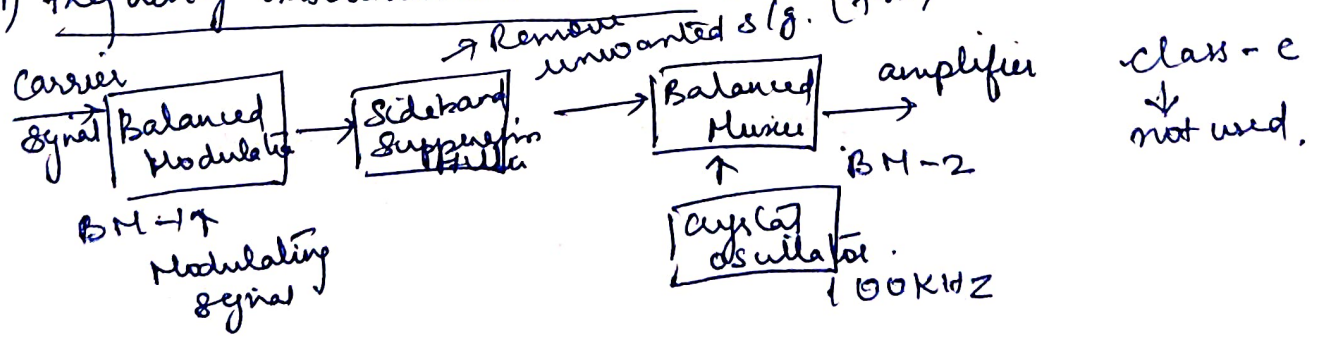 → Remove
unwanted s/g.
Carrier
signal
Balanced
Modulator
Sideband
Suppression
filter
Balanced
Mixer
amplifier
class - c
↓
not used.
BM-1
BM-2
Modulating
signal
crystal
oscillator.
100KHZ